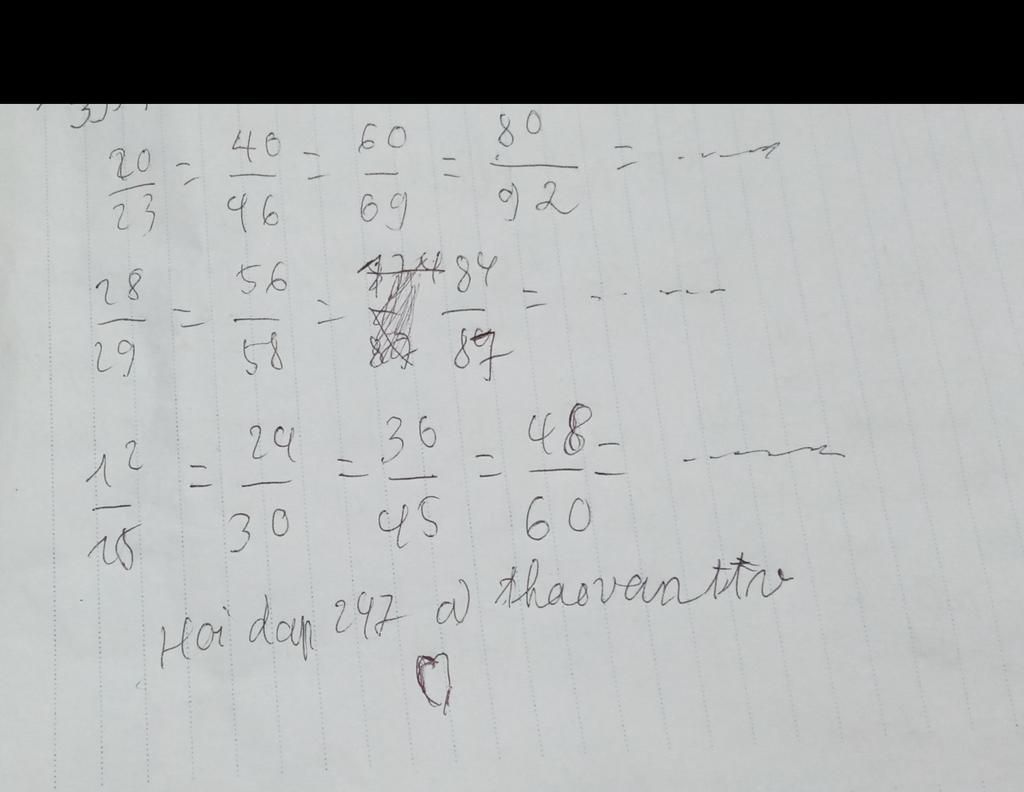 20/23 = 40/46 = 60/69 = 80/92 = ......
28/29 = 56/58 = 84/87 = ......
12/15 = 24/30 = 36/45 = 48/60 = ......
Hoi dap 247 @ thaovanttv